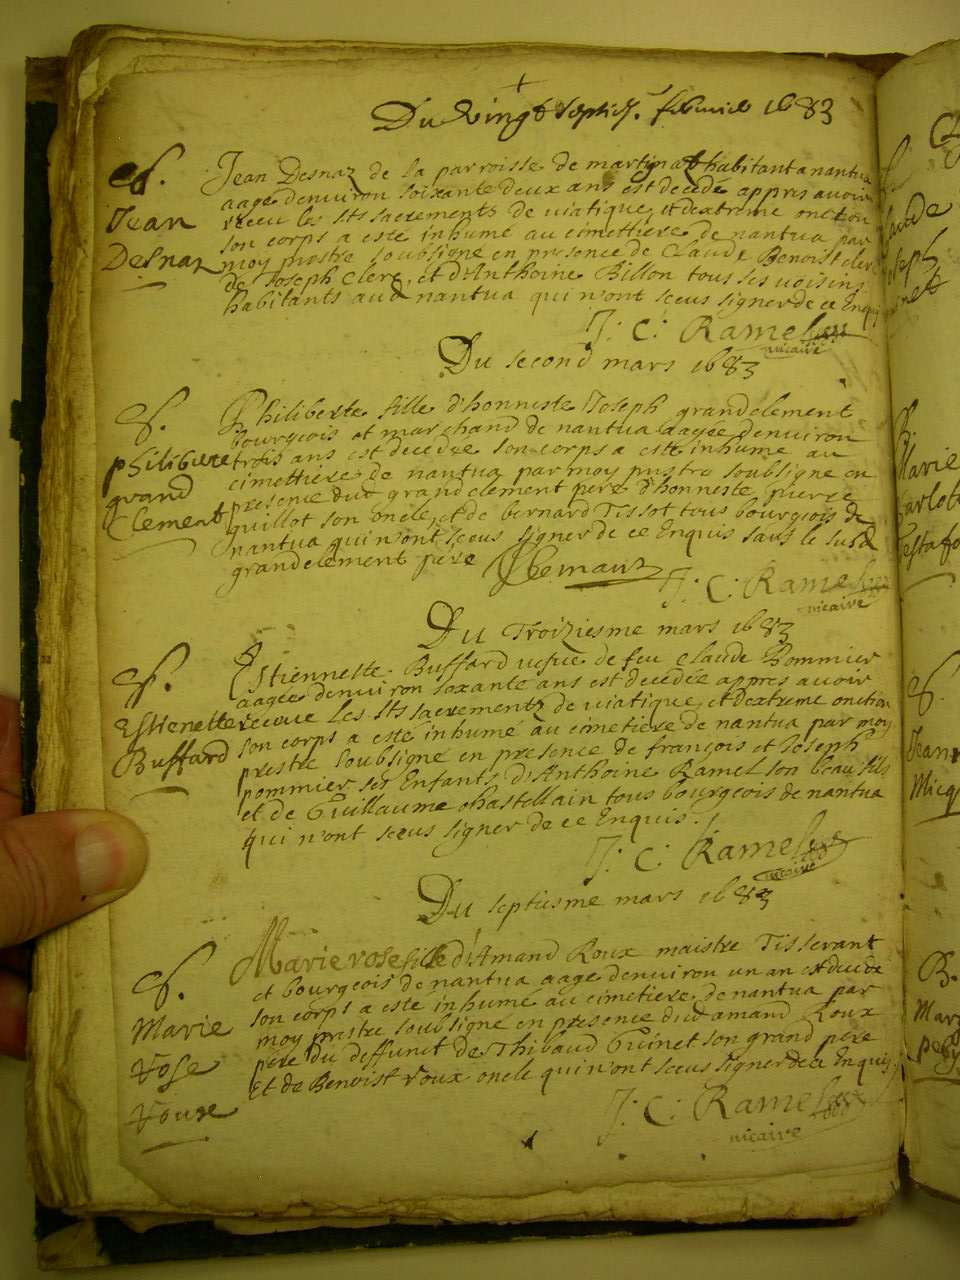 Du vingt septies. febvrier 1683
S.
Jean
Desnaz
Jean Desnaz de la parroisse de martignat habitant a nantua
aage denviron soixante deux ans est decede appres avoir
receu les sts sacrements de viatique et dextreme onction
son corps a esté inhumé au cimettiere de nantua par
moy prestre soubsigné en presence de Claude Benoist clerc
de Joseph Clerc, et d'Anthoine Billon tous ses voisins
habitants aud nantua qui n'ont sceus signer de ce Enquis
J: C: Ramel
vicaire
Du second mars 1683
S.
philiberte
grand
Clement
Philiberte fille d'honneste Joseph grandclement
bourgeois et marchand de nantua aagée denviron
trois ans est decedée son corps a esté inhume au
cimettiere de nantua par moy prestre soubsigne en
presence dud grandclement pere d'honneste pierre
guillot son oncle, et de bernard Tissot tous bourgeois de
nantua qui n'ont sceus signer de ce Enquis sauf le susd
grandclement père
J: C: Ramel
vicaire
Du Troiziesme mars 1683
S.
Estienette
Buffard
Estiennette Buffard vefve de feu Claude Pommier
aagée denviron soxante ans est decedée appres avoir
receue les sts sacrements de viatique, et dextreme onction
son corps a esté inhumé au cimetiere de nantua par moy
prestre soubsigné en presence de françois et Joseph
pommier ses Enfants d'Anthoine Ramel son beau fils
et de Guillaume chastellain tous bourgeois de nantua
qui n'ont sceus signer de ce Enquis.
J: C: Ramel
vicaire
Du septiesme mars 1683
S.
Marie
Rose
Roux
Marie rose fille d'Amand Roux maistre Tisserant
et bourgeois de nantua aage denviron un an est decede
son corps a esté inhume au cimetiere de nantua par
moy prestre soubsigné en presence dud amand Roux
père du deffunct de Thibaud Guinet son grand père
et de Benoist roux oncle qui n'ont sceus signer de ce Enquis
J: C: Ramel
vicaire